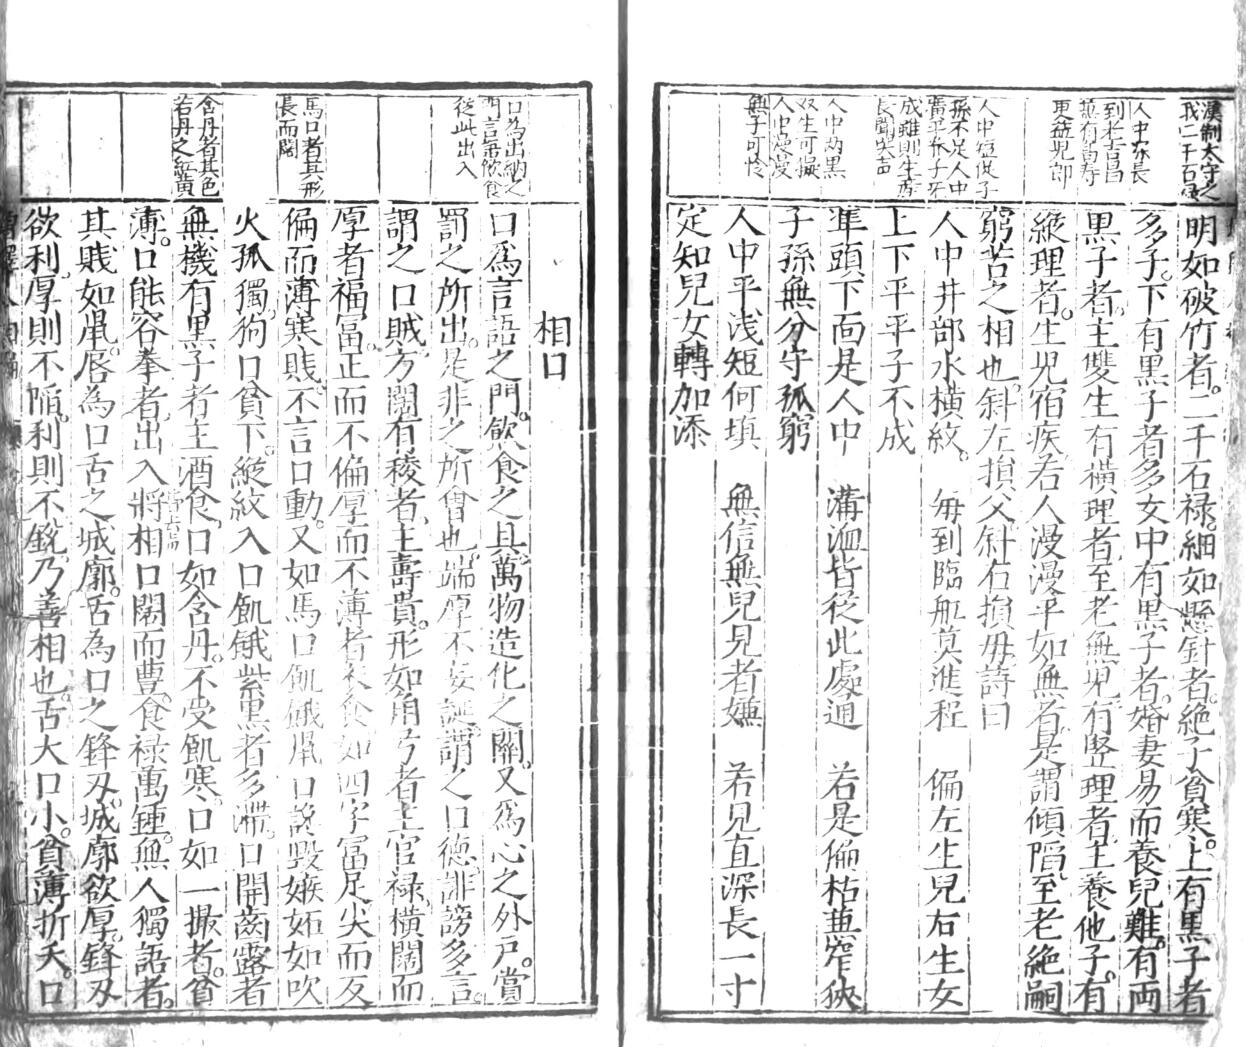 漢制太守之
我二千石是
人中深長
到老吉昌
並有高壽
更莊兒郎
人中短促子
孫不足人中
廣平養子不
成雖則生產
長聞哭声
人中両黒
双生可擬
人中漫漫
無子可怜
明如破竹者。二千石禄。細如懸針者。絶子貧寒。上有黒子者
多子。下有黒子者多女中有黒子者。婚妻易而養兒難。有両
黒子者。主雙生有横理者至老無兒。有竪理者。主養他子。有
縱理者。生兒宿疾。若人漫漫平如無者。是謂傾陷。至老絶嗣
窮苦之相也。斜左損父。斜右損毋。詩曰
人中井部水横紋。 毎到臨船莫進程 偏左生兒右生女
上下平平子不成
準頭下面是人中 溝洫皆從此處通 若是偏枯兼窄狹
子孫無分守孤窮
人中平浅短何填 無信無兒見者嫌 若見直深長一寸
定知兒女轉加添
口為出納之
門言語飲食
從此出入
馬口者其形
長而闊
含丹者其色
若丹之紅黄
相口
口爲言語之門。飲食之具。萬物造化之關。又爲心之外户。賞
罰之所出。是非之所會也。端厚不妄誕。謂之口徳。誹謗多言。
謂之口賊。方闊有稜者。主壽貴。形如角弓者主官禄。横闊而
厚者福富。正而不偏厚而不薄者衣食。如四字富足尖而反
偏而薄寒賎。不言口動。又如馬口飢餓鼠口讒毀嫉妬如吹
火孤獨。狗口貧下。縱紋入口飢餓紫黒者多滯。口開齒露者
無機有黒子者主酒食。口如含丹。不受飢寒。口如一撮者。貧
薄。口能容拳者。出入將相口闊而豊。食禄萬鍾。無人獨語者。
其賎如鼠。唇為口舌之城廓。舌為口之鋒刄。城廓欲厚。鋒刄
欲利。厚則不陷。利則不鈍。乃善相也。舌大口小。貧薄折夭。口